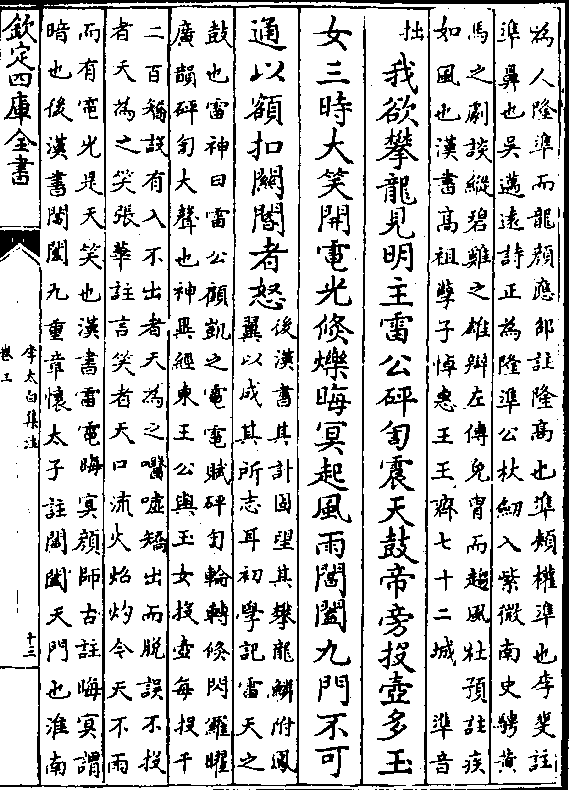 為人隆準而龍顔應邵註隆髙也準頰權準也李斐註
準鼻也吳邁遠詩正為隆準公杖劒入紫微南史騁黄
馬之劇談縱碧雞之雄辯左傳免冑而趨風杜預註疾
如風也漢書髙祖孽子悼惠王王齊七十二城 準音
拙 我欲攀龍見明主雷公砰訇震天鼓帝旁投壺多玉
女三時大笑開電光倏爍晦冥起風雨閶闔九門不可
通以額扣闗閽者怒 後漢書其計固望其攀龍鱗附鳳
翼以成其所志耳初學記雷天之
鼓也雷神曰雷公顧凱之電電賦砰訇輪轉倏閃羅曜
廣韻砰訇大聲也神異經東王公與玉女投壺每投千
二百矯設有入不出者天為之嘘矯出而脱誤不投
者天為之笑張華註言笑者天口流火炤灼今天不雨
而有電光是天笑也漢書雷電晦冥顔師古註晦冥謂
暗也後漢書閶闔九重章懷太子註閶闔天門也淮南
欽定四庫全書
李太白集注
卷三
十三